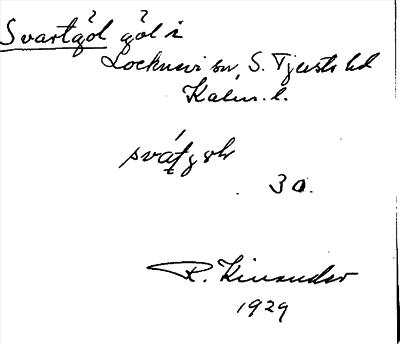 Svartgöl göl i
Locknevi sn, S. Tjusts hd
Kalm. l.
svát̤gøl
30.
R. Kinander
1929